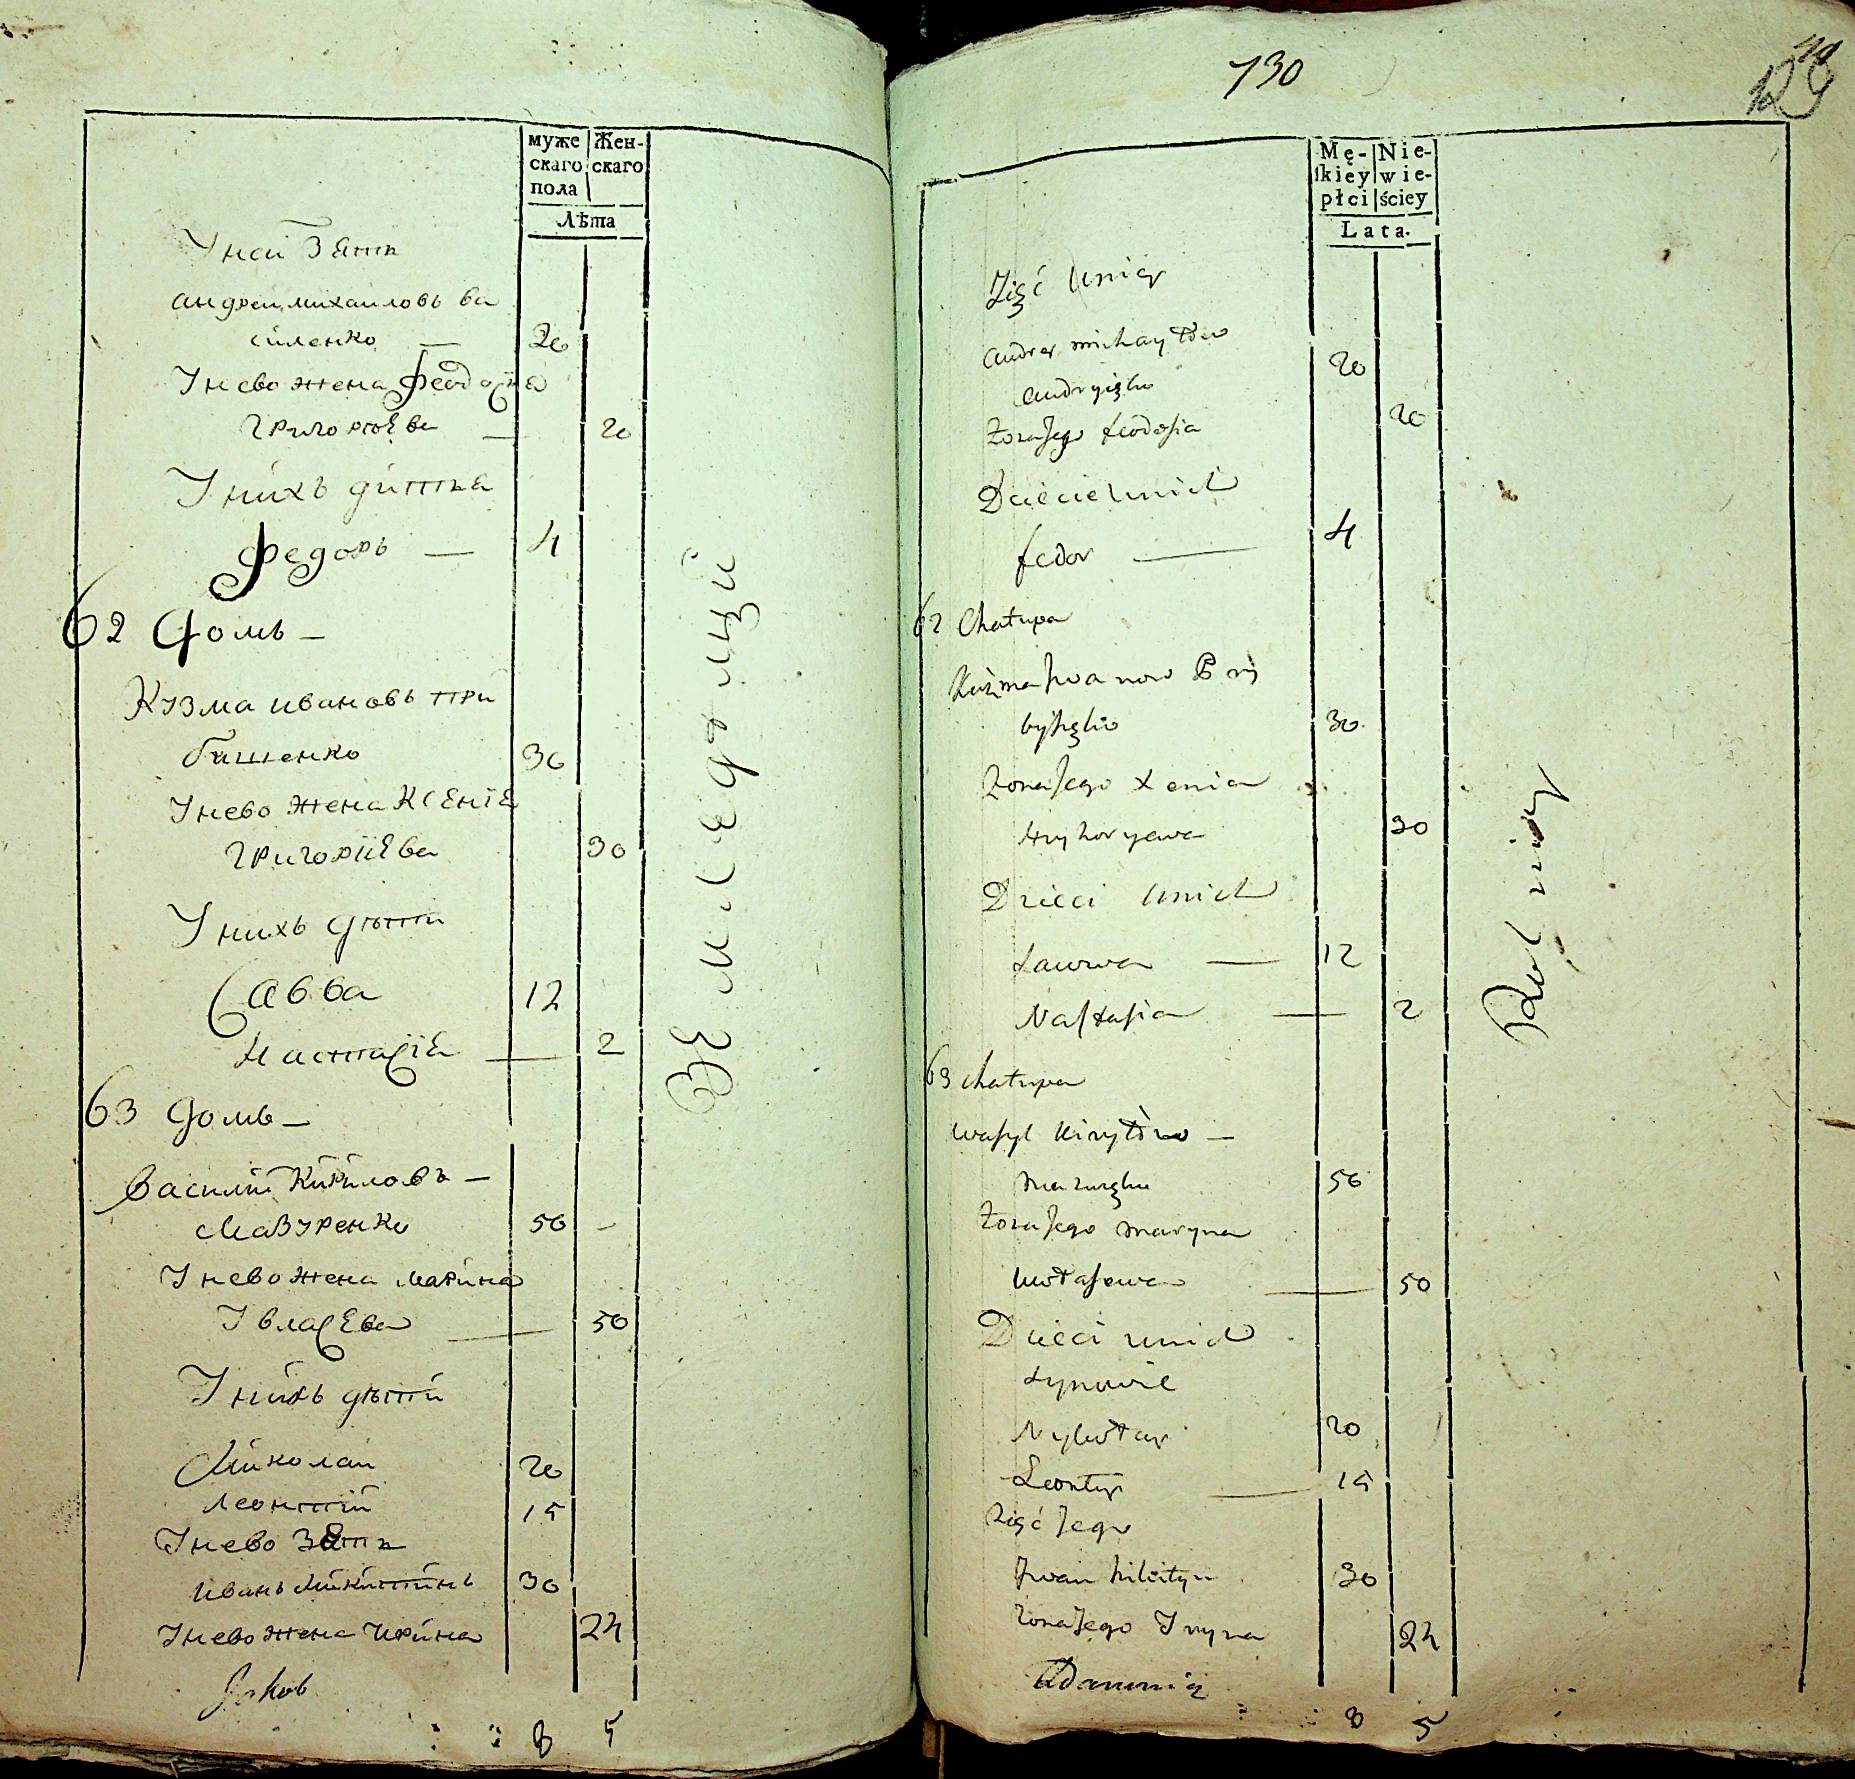 муже
скаго
пола
Жен-
скаго
Лѣта
У неи Зять
андреи михаиловъ ва
силенко — 20
У нево жена Феодосиа
григорюева — 20
У нихъ дитка
Федоръ — 4
62 Домъ —
Кузма ивановъ при
башенко 30
У нево жена Ксенiе
григорiева 30
У нихъ дѣти
Савва 12
Настасiе — 2
63 Домъ —
Василий Кирловъ —
Мазуренко 50 —
У нево жена марина
Iвласева — 50
У нихъ дѣти
Миколаи 20
леонтий 15
У нево Зять
иванъ Микитинъ 30
У нево жена Ирина 24
Jakob
8 5
Земледѣлци
730
Mę-
skiey
płci
Nie-
wie-
ściey
Lata.
Zięć Uniey
Andrey michayłow
20
Żona Jego feodosia 20
Dziecie Unich
fedor — 4
62 Chałupa
Kuźma Iwanow Pry
byszęko 30
Żona Jego Xenia
Hryhoryewa 30
Dzieci Unich
Sawwa — 12
Nastasia — 2
63 Chałupa
Wasyl Kiryłow —
Mazuręko 50
Żona Jego Maryna
— 50
Dzieci Unich
Synowie
Nykołay 20
Leonty — 15
Zięć Jego
Iwan Nikityn 30
Żona Jego Iryna 24
Adamowicz
8 5
Rolnicy